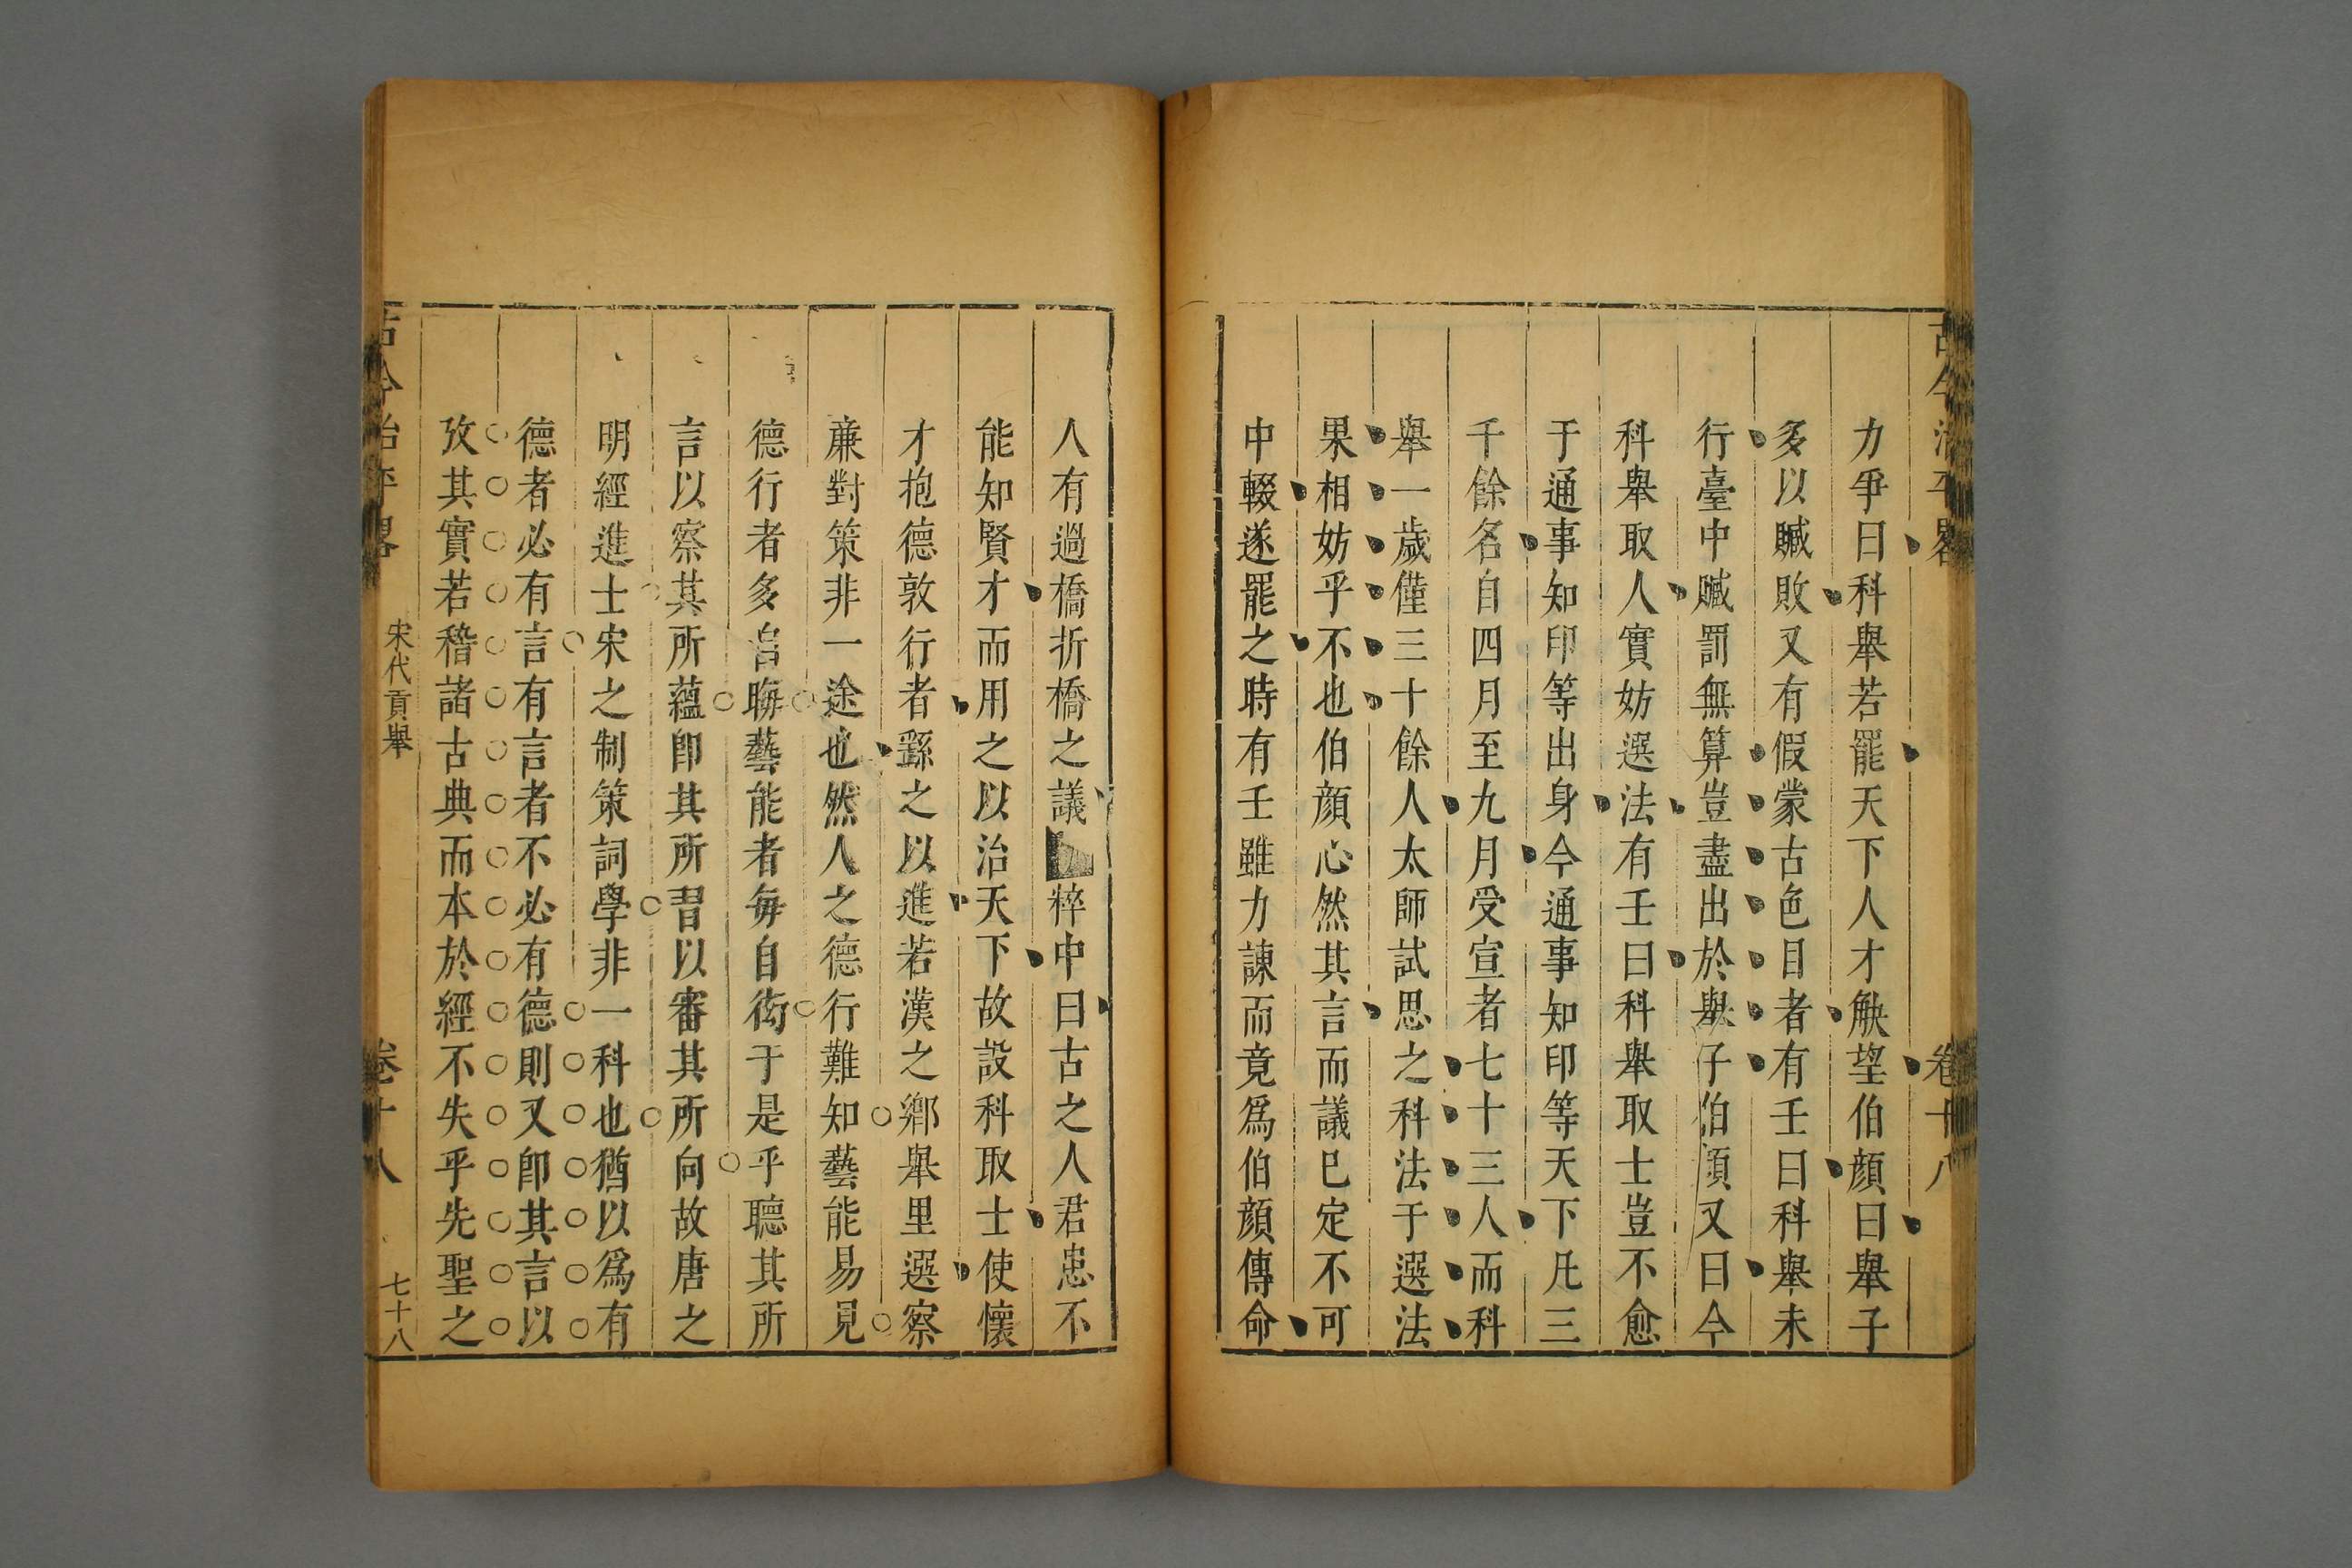 古今治平畧 卷十八
力爭曰科舉若罷天下人才觖望伯顔曰舉子
多以贓敗又有假蒙古色目者有壬曰科舉未
行臺中贓罰無算豈盡出於舉子伯顔又曰今
科舉取人實妨選法有壬曰科舉取士豈不愈
于通事知印等出身今通事知印等天下凡三
千餘名自四月至九月受宣者七十三人而科
舉一歲僅三十餘人太師試思之科法于選法
果相妨乎不也伯顔心然其言而議已定不可
中輟遂罷之時有壬雖力諫而竟爲伯顔傳命
人有過橋折橋之議粹中曰古之人君患不
能知賢才而用之以治天下故設科取士使懷
才抱德敦行者繇之以進若漢之鄕舉里選察
亷對策非一途也然人之德行難知藝能易見
德行者多自晦藝能者每自衒于是乎聽其所
言以察其所蘊卽其所習以審其所向故唐之
明經進士宋之制策詞學非一科也猶以爲有
德者必有言有言者不必有德則又卽其言以
攷其實若稽諸古典而本於經不失乎先聖之
古今治平畧 宋代貢舉 卷十八 七十八